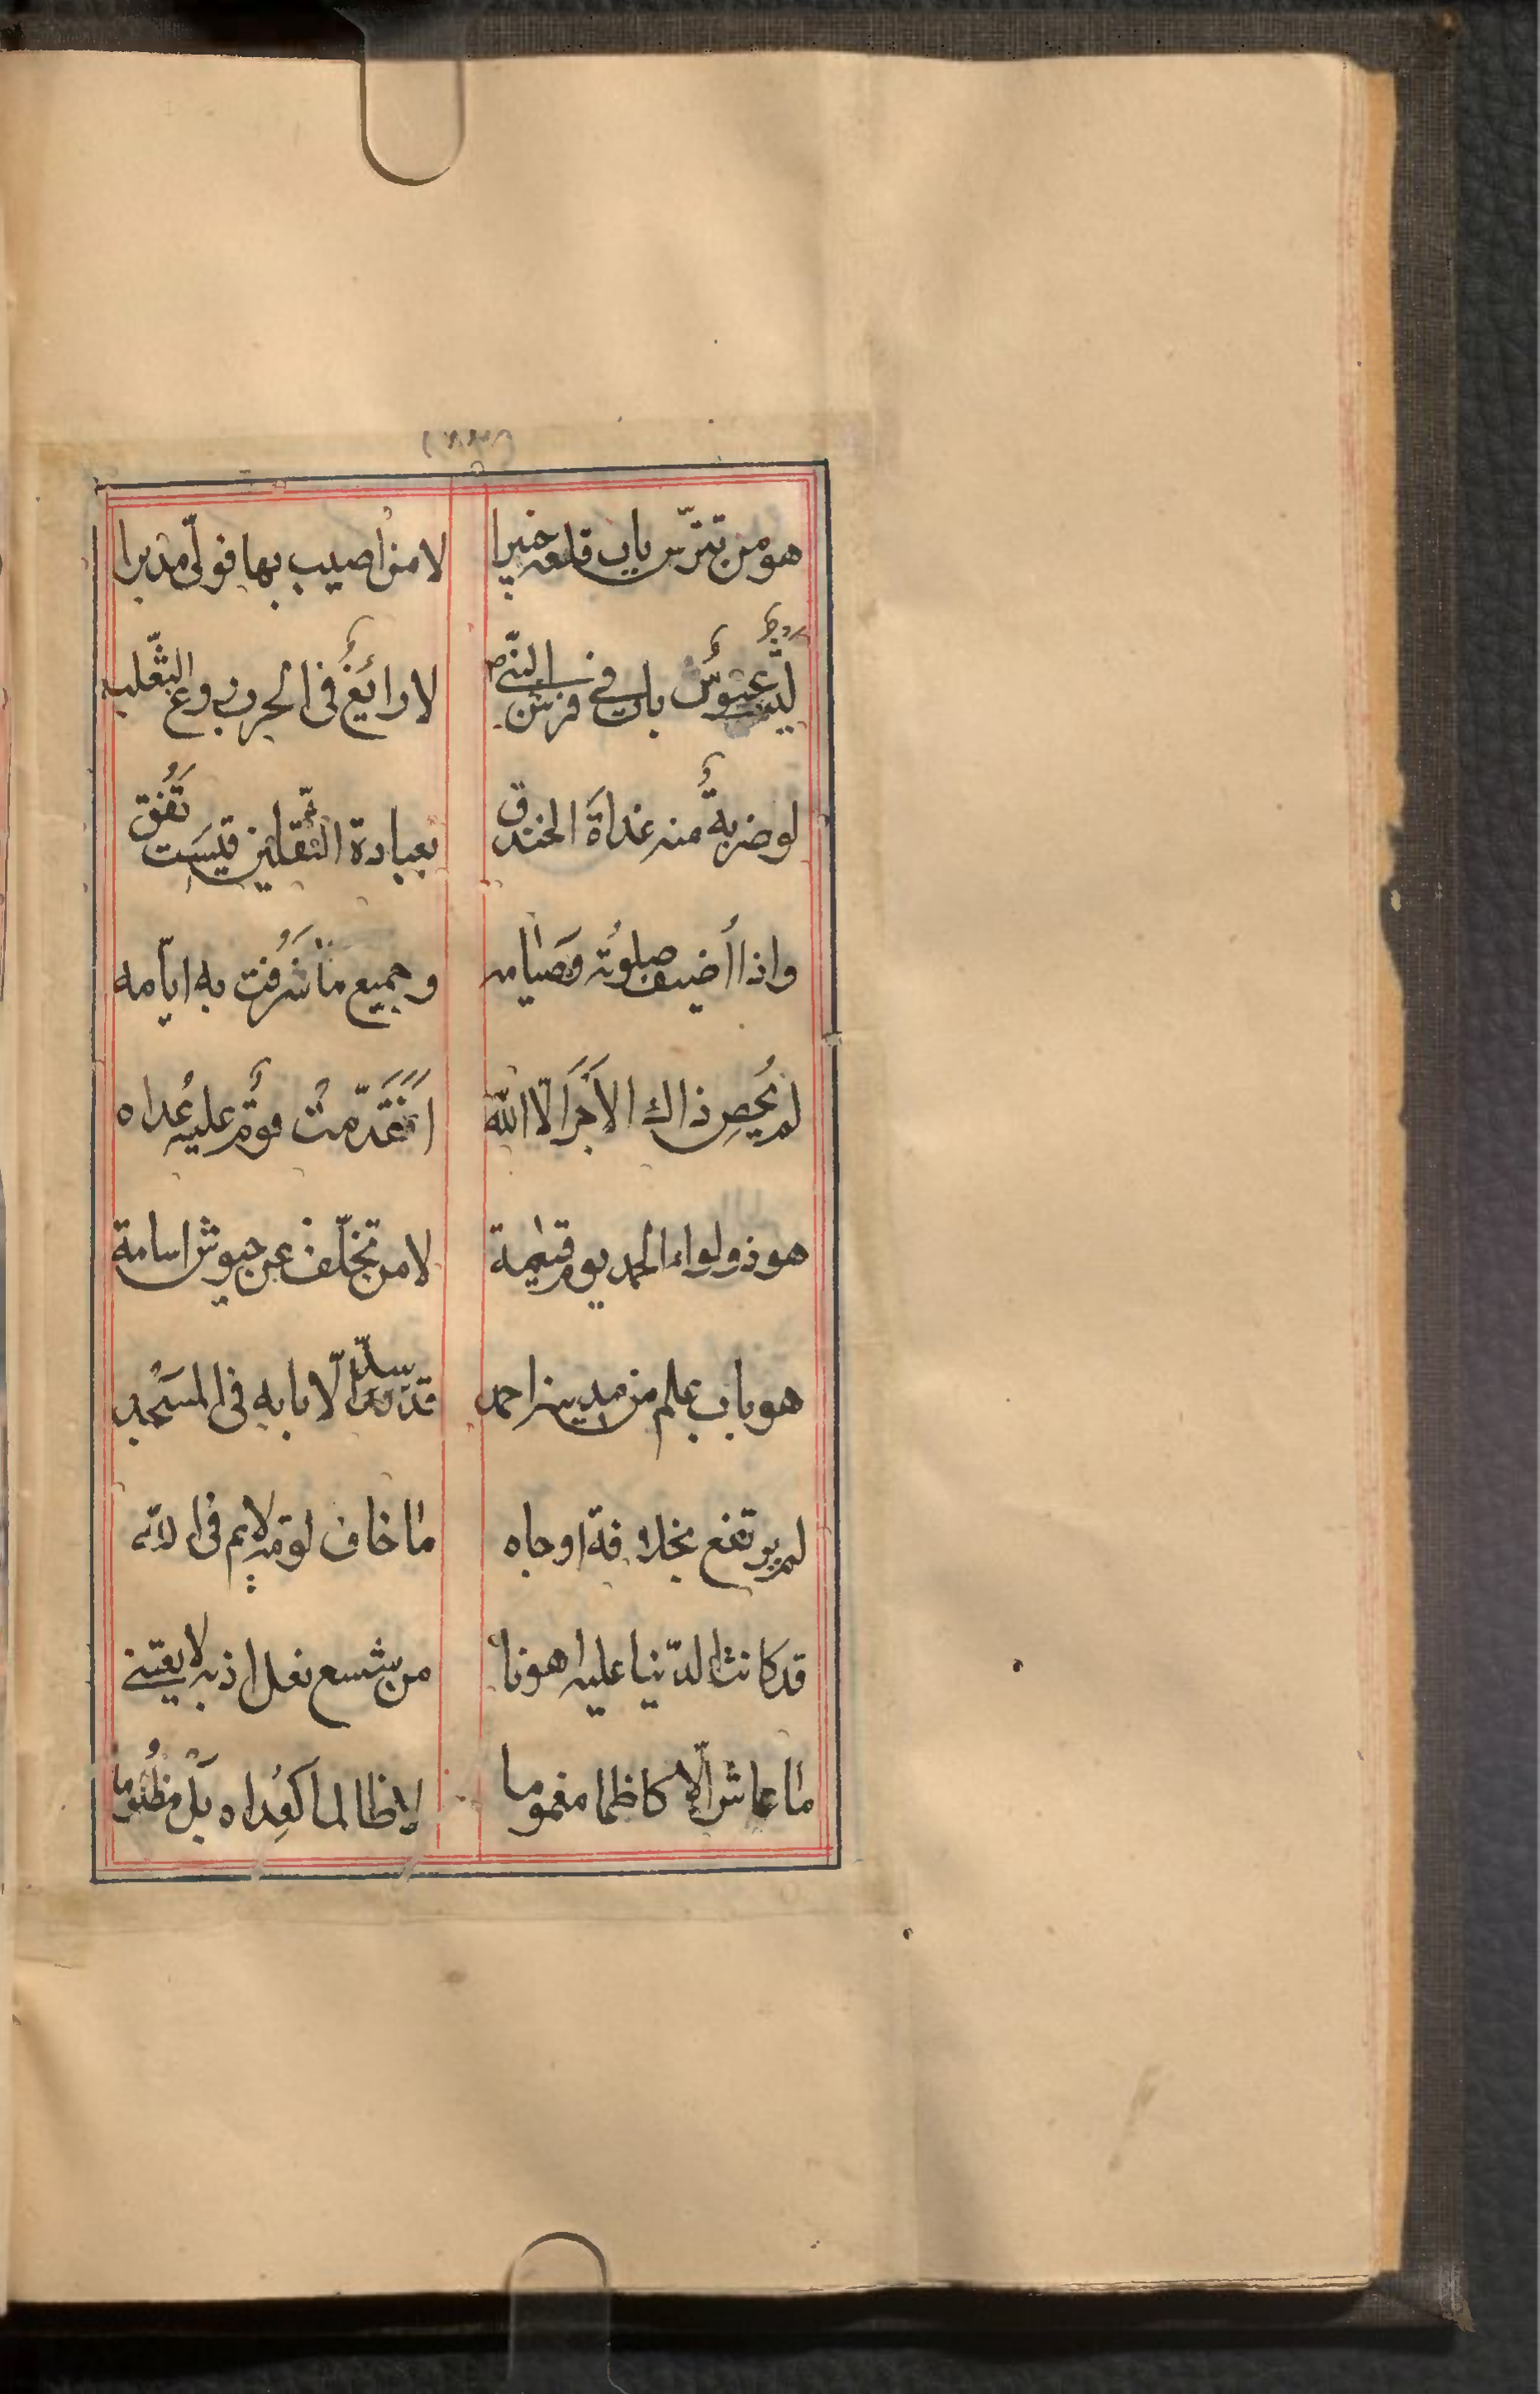 هو من تترّس باب قلعه خيبرا لا من اصيب بها فولّى مدبرا
ليث عبوسٌ بات في فرش النّبي لا رائغٌ في الحرب روغ الثّعلب
لو ضربةٌ منه غداةَ الخندق بعبادة الثّقلين قيسَت تَفُق
واذا اُضيف صلوتُه وَصيامه وجميع ما شَرُفت به ايّامه
لم يُحصِ ذاك الاَجرَ الّا الله اَفَتَقَدّمت قومٌ عليه عُداه
هو ذو لواء الحمد يوم قيٰمة لا من تخلّف عن جيوش اسامة
هو باب علم من مدينه احمد قد سدّ الّا بابه في المسْجد
لم يرتفع بخلافة او جاه ما خاف لومه لايم في الله
قد كانت الدّنيا عليه اهونا من شسع نعل اذ به لا يعتني
ما عاش الّا كاظما مغموما لا ظالما كعُداه بَلْ مظلُوما